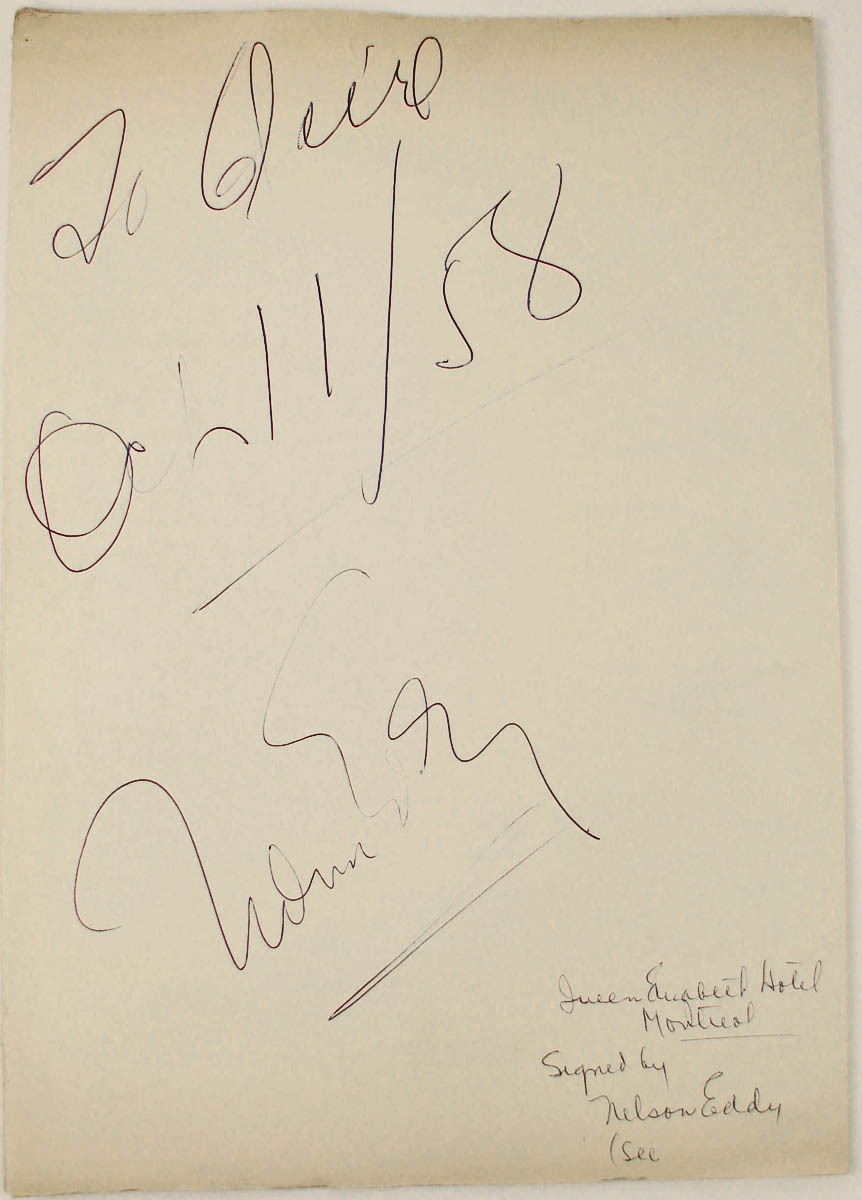 To
Oct 11/58
Nelson Eddy
Queen Elizabeth Hotel
Montreal
Signed by
Nelson Eddy
(see